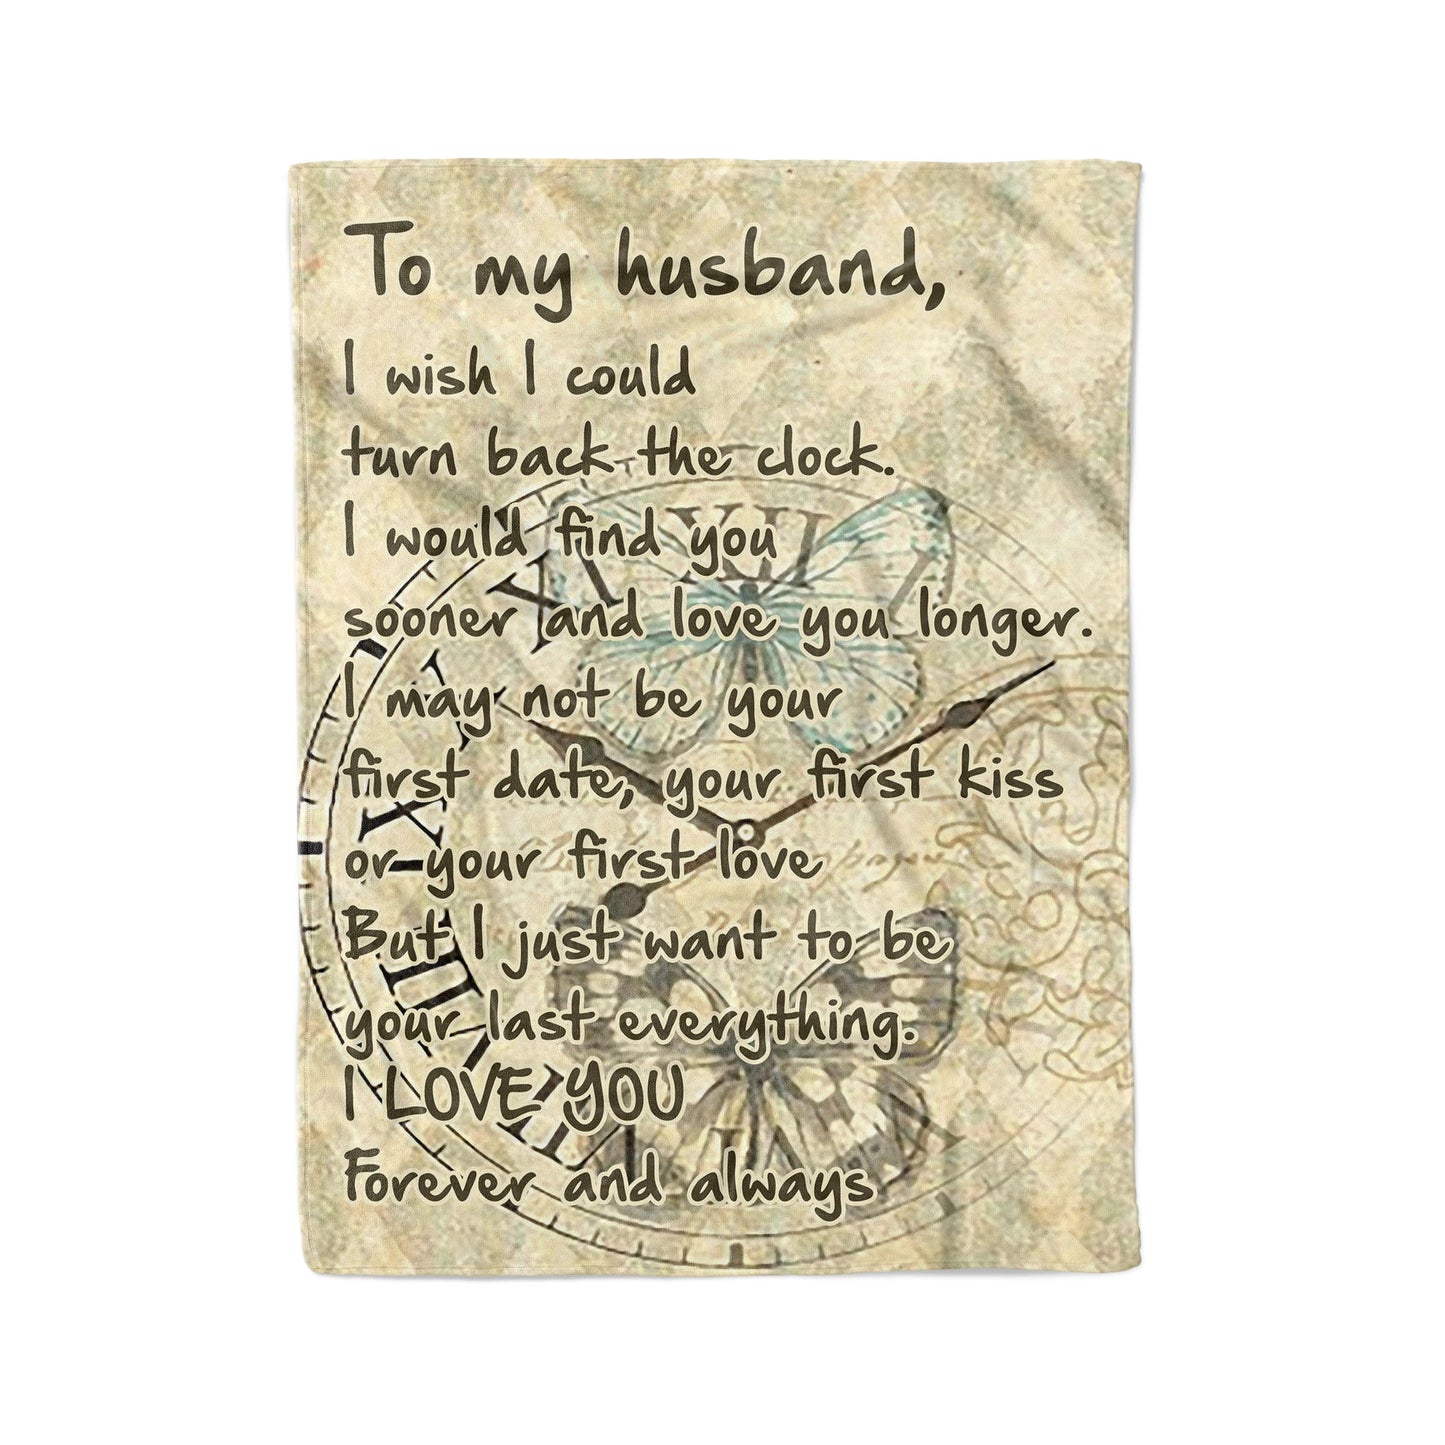 To my husband,
I wish I could
turn back the clock.
I would find you
sooner and love you longer.
I may not be your
first date, your first kiss
or your first love
But I just want to be
your last everything.
I LOVE YOU
Forever and always
XII
XI
X
IX
VIII
VII
VI